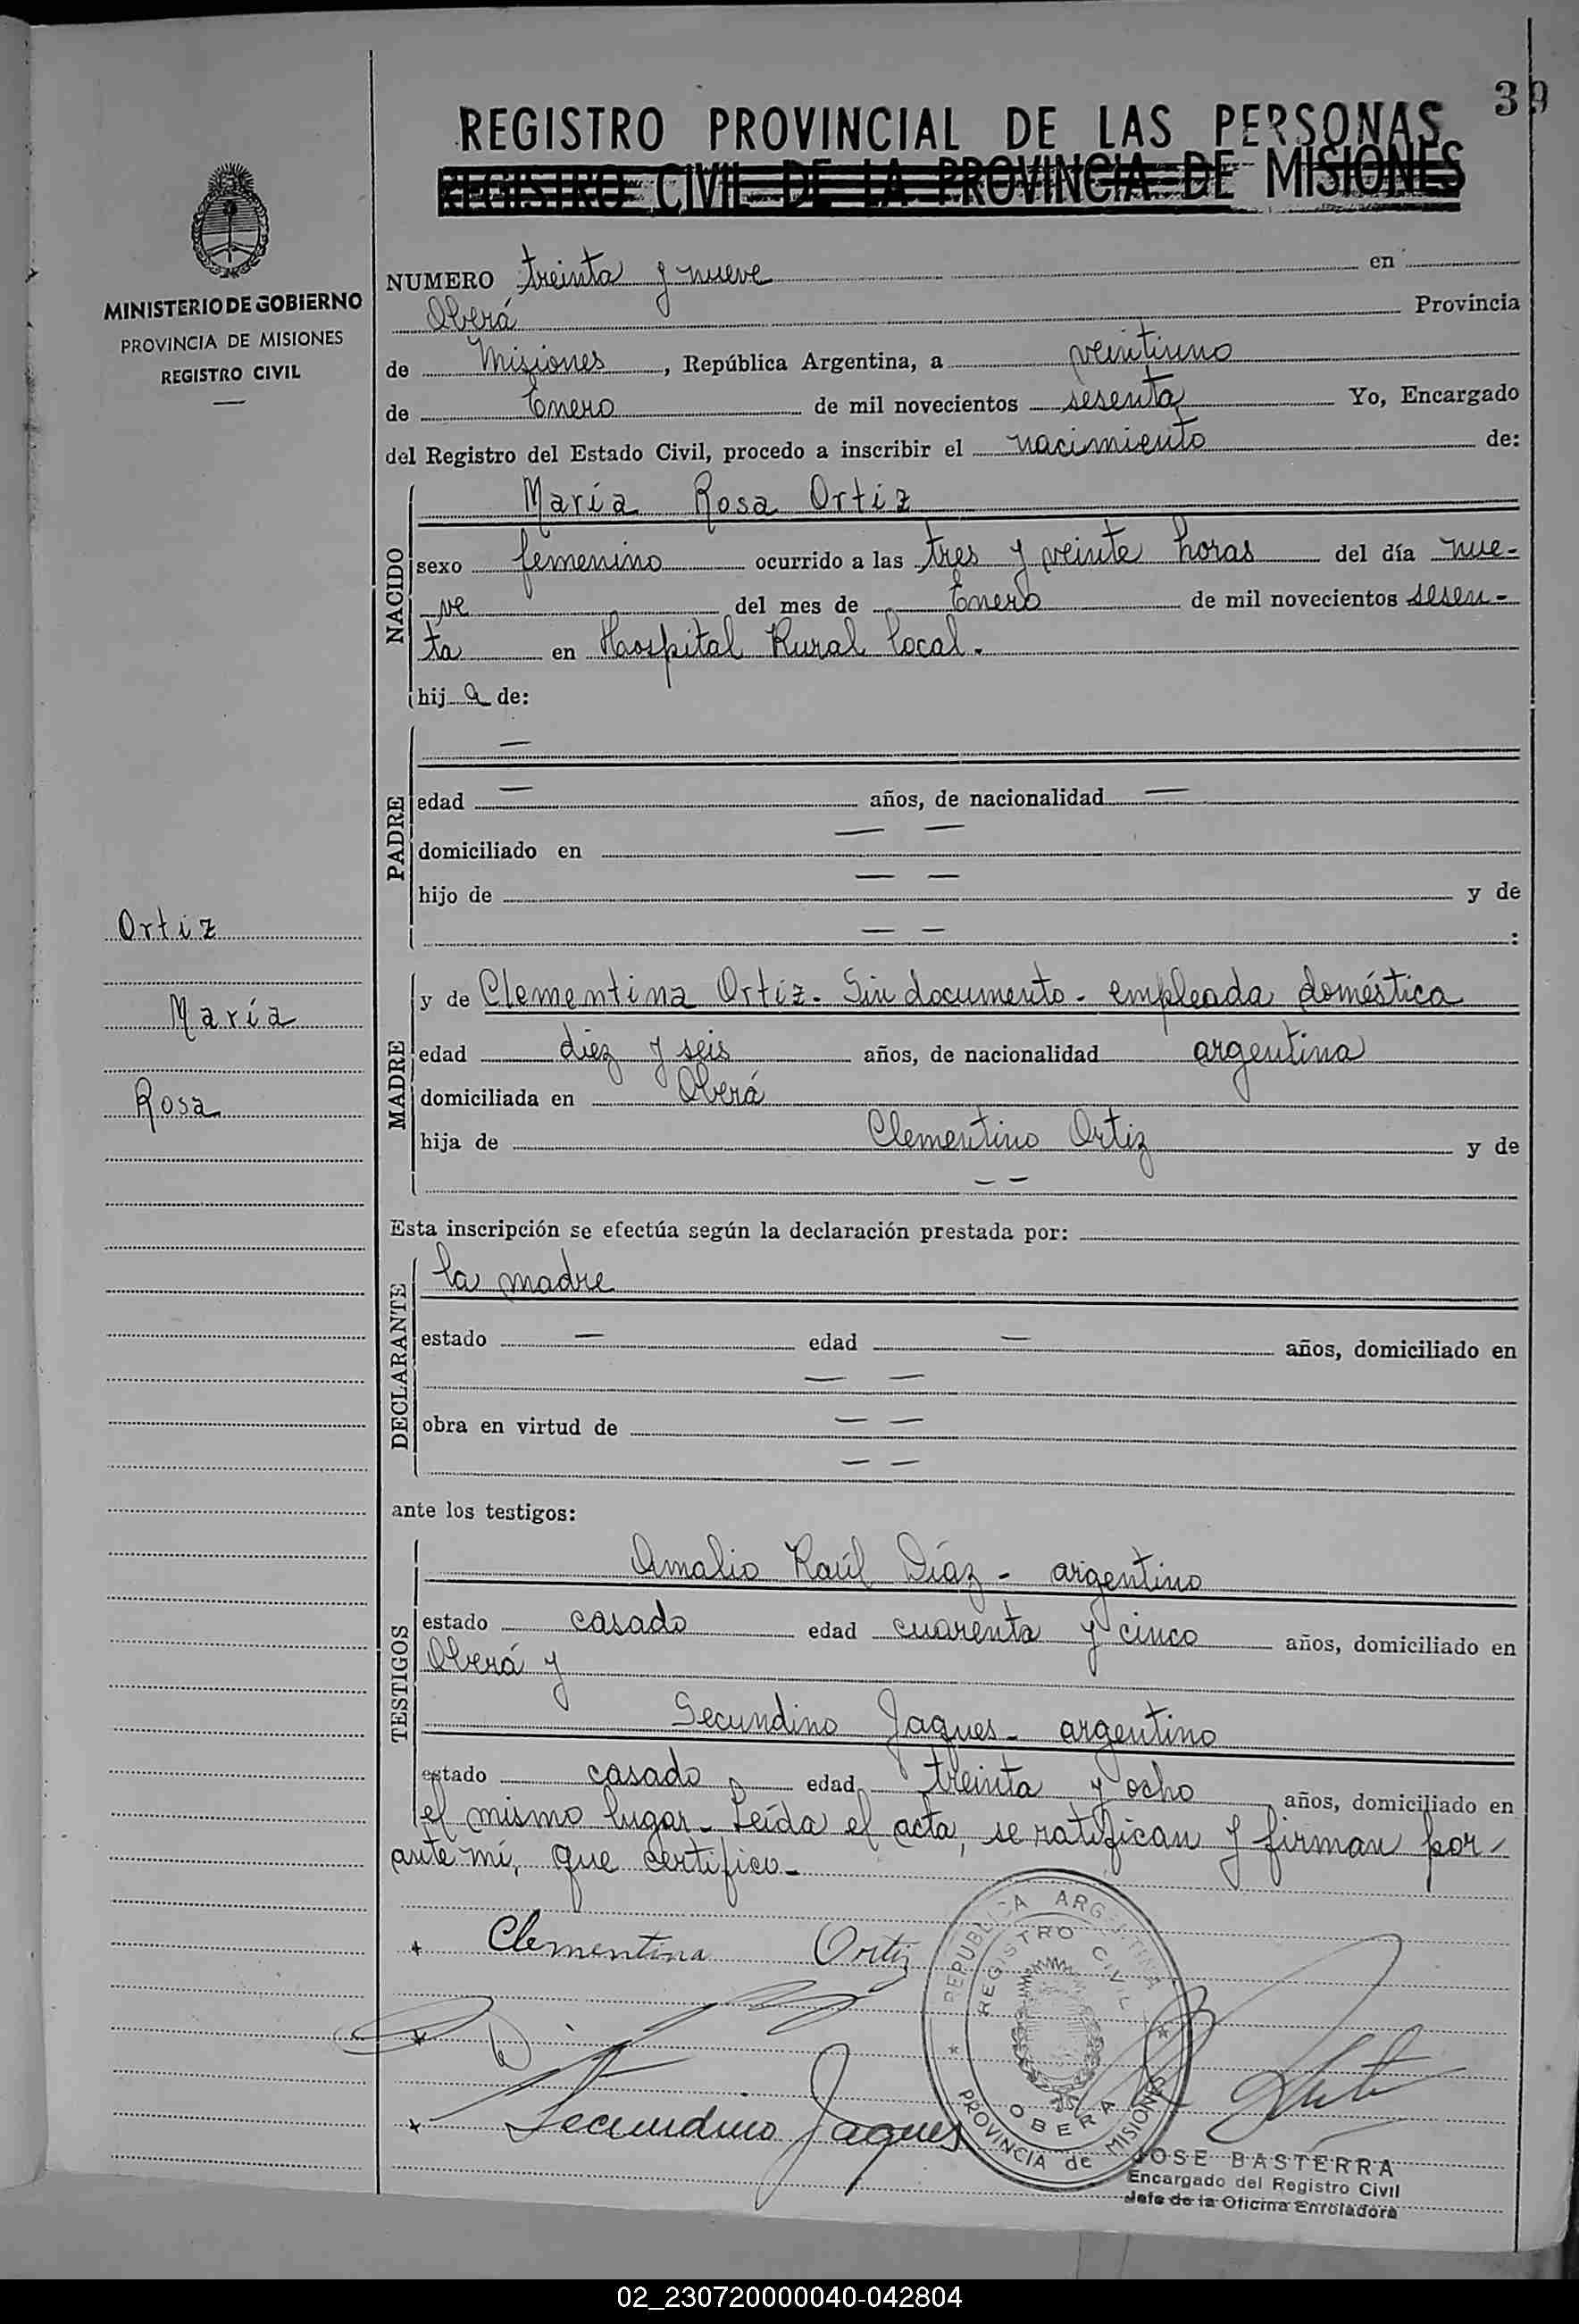 39
REGISTRO PROVINCIAL DE LAS PERSONAS
REGISTRO CIVIL DE LA PROVINCIA DE MISIONES
MINISTERIO DE GOBIERNO
PROVINCIA DE MISIONES
REGISTRO CIVIL
NUMERO treinta y nueve en
Oberá Provincia
de Misiones, República Argentina, a veintiuno
de Enero de mil novecientos sesenta Yo, Encargado
del Registro del Estado Civil, procedo a inscribir el nacimiento de:
NACIDO
María Rosa Ortiz
sexo femenino ocurrido a las tres y veinte horas del día nue-
ve del mes de Enero de mil novecientos sesen-
ta en Hospital Rural local.
hija de:
PADRE
—
edad — años, de nacionalidad —
domiciliado en — —
hijo de — — y de
— — :
Ortiz
María
Rosa
MADRE
y de Clementina Ortiz. Sin documento - empleada doméstica
edad diez y seis años, de nacionalidad argentina
domiciliada en Oberá
hija de Clementino Ortiz y de
— —
Esta inscripción se efectúa según la declaración prestada por:
DECLARANTE
la madre
estado — edad — años, domiciliado en
— —
obra en virtud de — —
— —
ante los testigos:
TESTIGOS
Amalio Raúl Díaz - argentino
estado casado edad cuarenta y cinco años, domiciliado en
Oberá y
Secundino Jaques - argentino
estado casado edad treinta y ocho años, domiciliado en
el mismo lugar. Leída el acta, se ratifican y firman por
ante mí, que certifico.
Clementina Ortiz
Secundino Jaques
REPUBLICA ARGENTINA
REGISTRO CIVIL
OBERA
PROVINCIA de MISIONES
JOSE BASTERRA
Encargado del Registro Civil
Jefe de la Oficina Enroladora
02_230720000040-042804